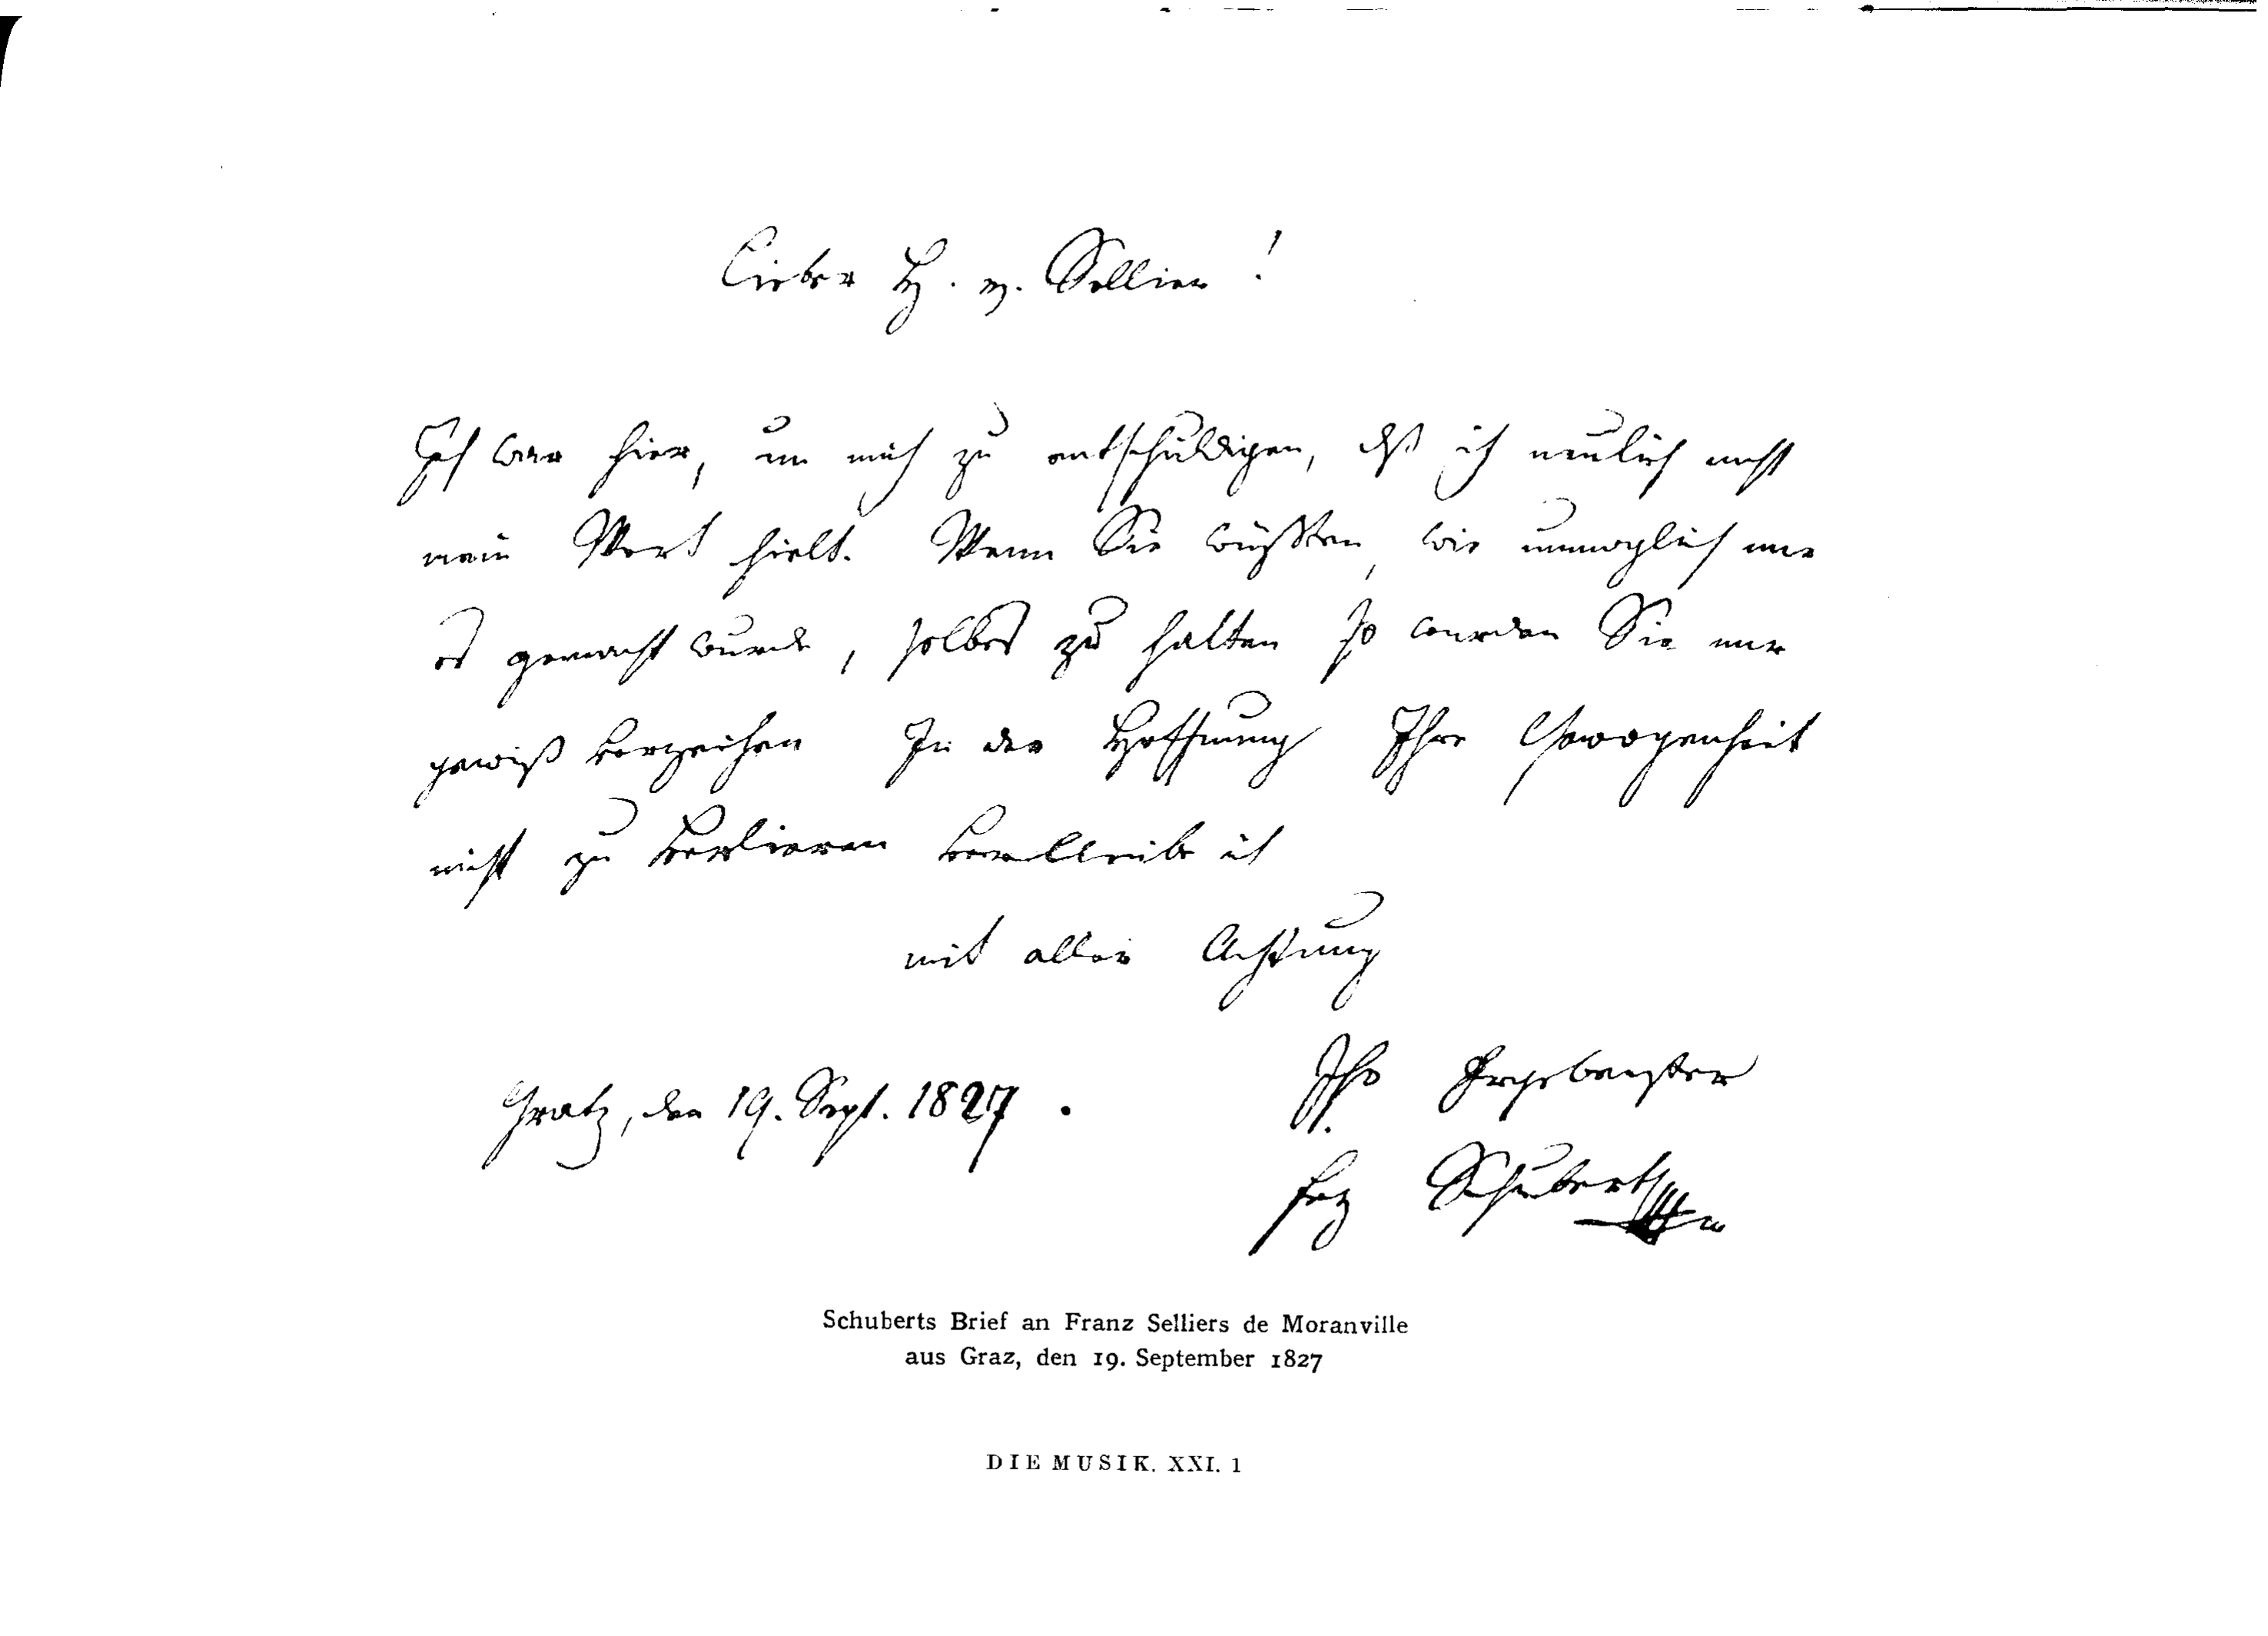 Lieber H. v. Sellier!
Ich war hier, um mich zu entschuldigen, dß ich neulich nicht
mein Wort hielt. Wenn Sie wüßten, wie unmöglich mir
es gemacht wurde, selbes zu halten so würden Sie mir
gewiß verzeihen In der Hoffnung Ihre Gewogenheit
nicht zu verlieren verbleibe ich
mit aller Achtung
Ihr Ergebenster
Gratz, den 19. Sept. 1827.
Frz Schubert
Schuberts Brief an Franz Selliers de Moranville
aus Graz, den 19. September 1827
DIE MUSIK. XXI. 1